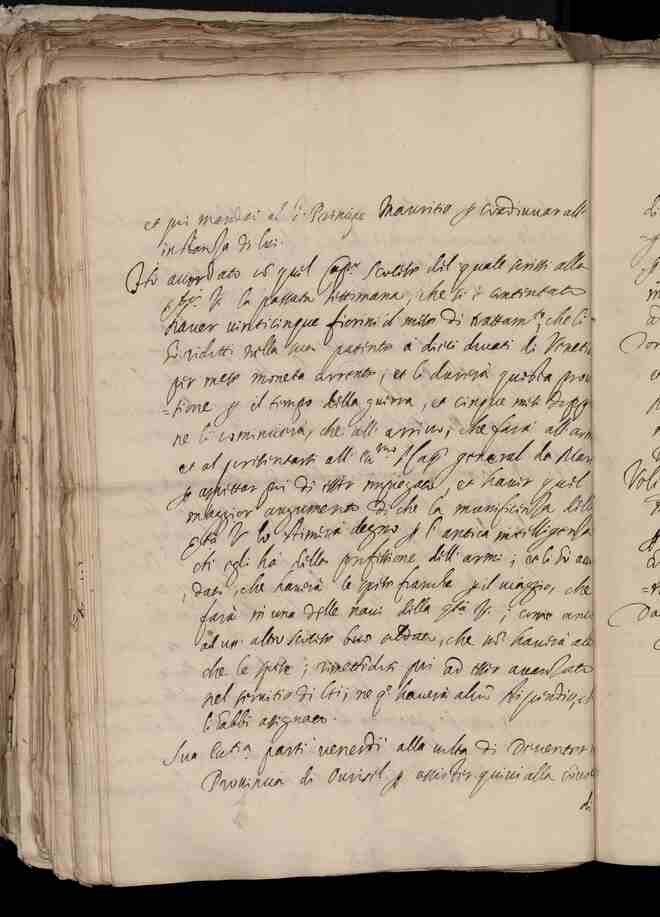 et poi mandai al s.r Principe Mauritio p coadiuvar all'
instanza di lui.
Ho accordato co quel Cap.o scoltese del quale scrissi alla
V. la passata settimana, che si è contentato
haver vinticinque fiorini il mese di trattam.to, che li
ridutti nella sua patente a dieci ducati di Venetia
per mese moneta corrente, et li durerà questa provi
=tione p il tempo della guerra, et cinque mesi
ne li comincierà, che all' arrivo, che farà all' arm
et al presentarsi all' Ecc.mo s.r Cap.o general da Mar
p aspettar poi di esser impiegato, et haver quel
maggior augumento di che la munificenza della
V. lo stimerà degno p l' antica intelligenza
ch' egli ha della professione dell' armi; et li ho accor
dato, che haverà le spese franche p il viaggio, che
farà in una delle navi della V.; come anco
ad un altro scoltese suo che no haverà altro
che le spese; rimettendosi poi ad esser avanzato
nel servitio di lei; ne p.a haverà alcun stipendio, che
li sabbi assignato.
Sua Ecc.za partì venerdì alla volta di Deventer
Provincia di Overisel p assister quivi alla
di